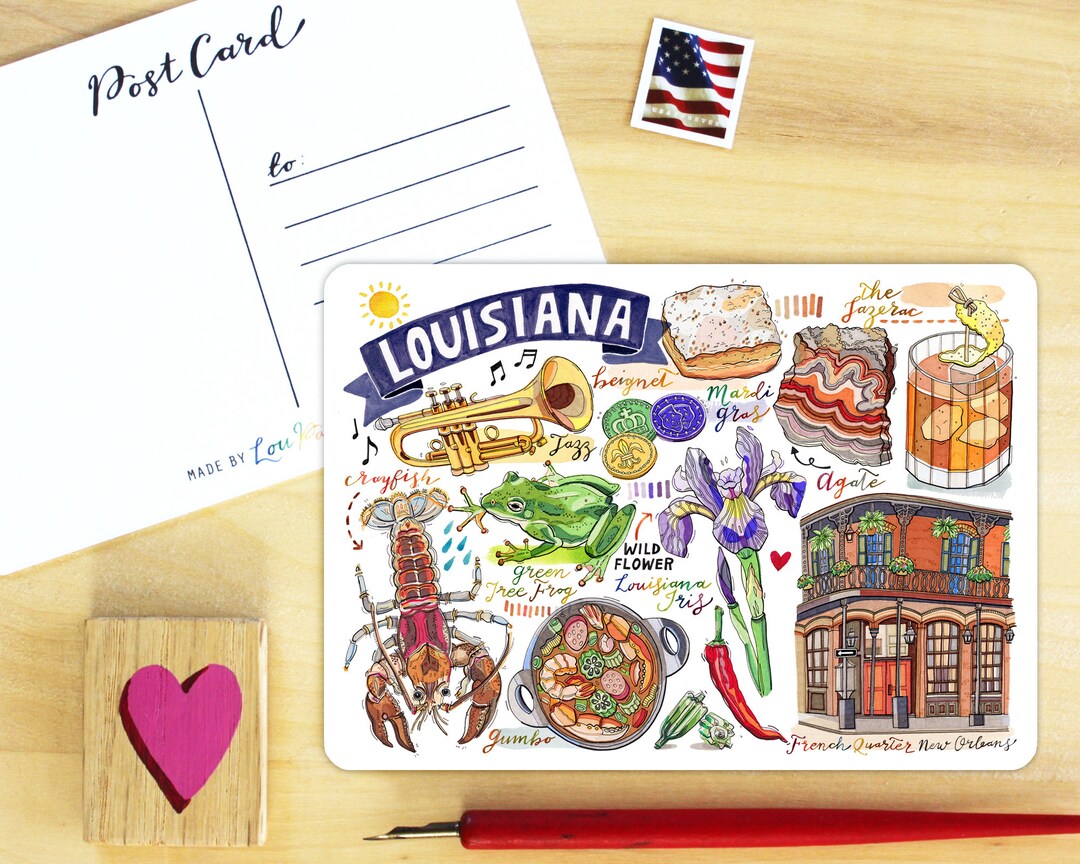 Post Card
to:
MADE BY Lou
LOUISIANA
beignet
The
Sazerac
Mardi
gras
Jazz
Agate
crayfish
green
Tree Frog
WILD
FLOWER
Louisiana
Iris
gumbo
French Quarter New Orleans